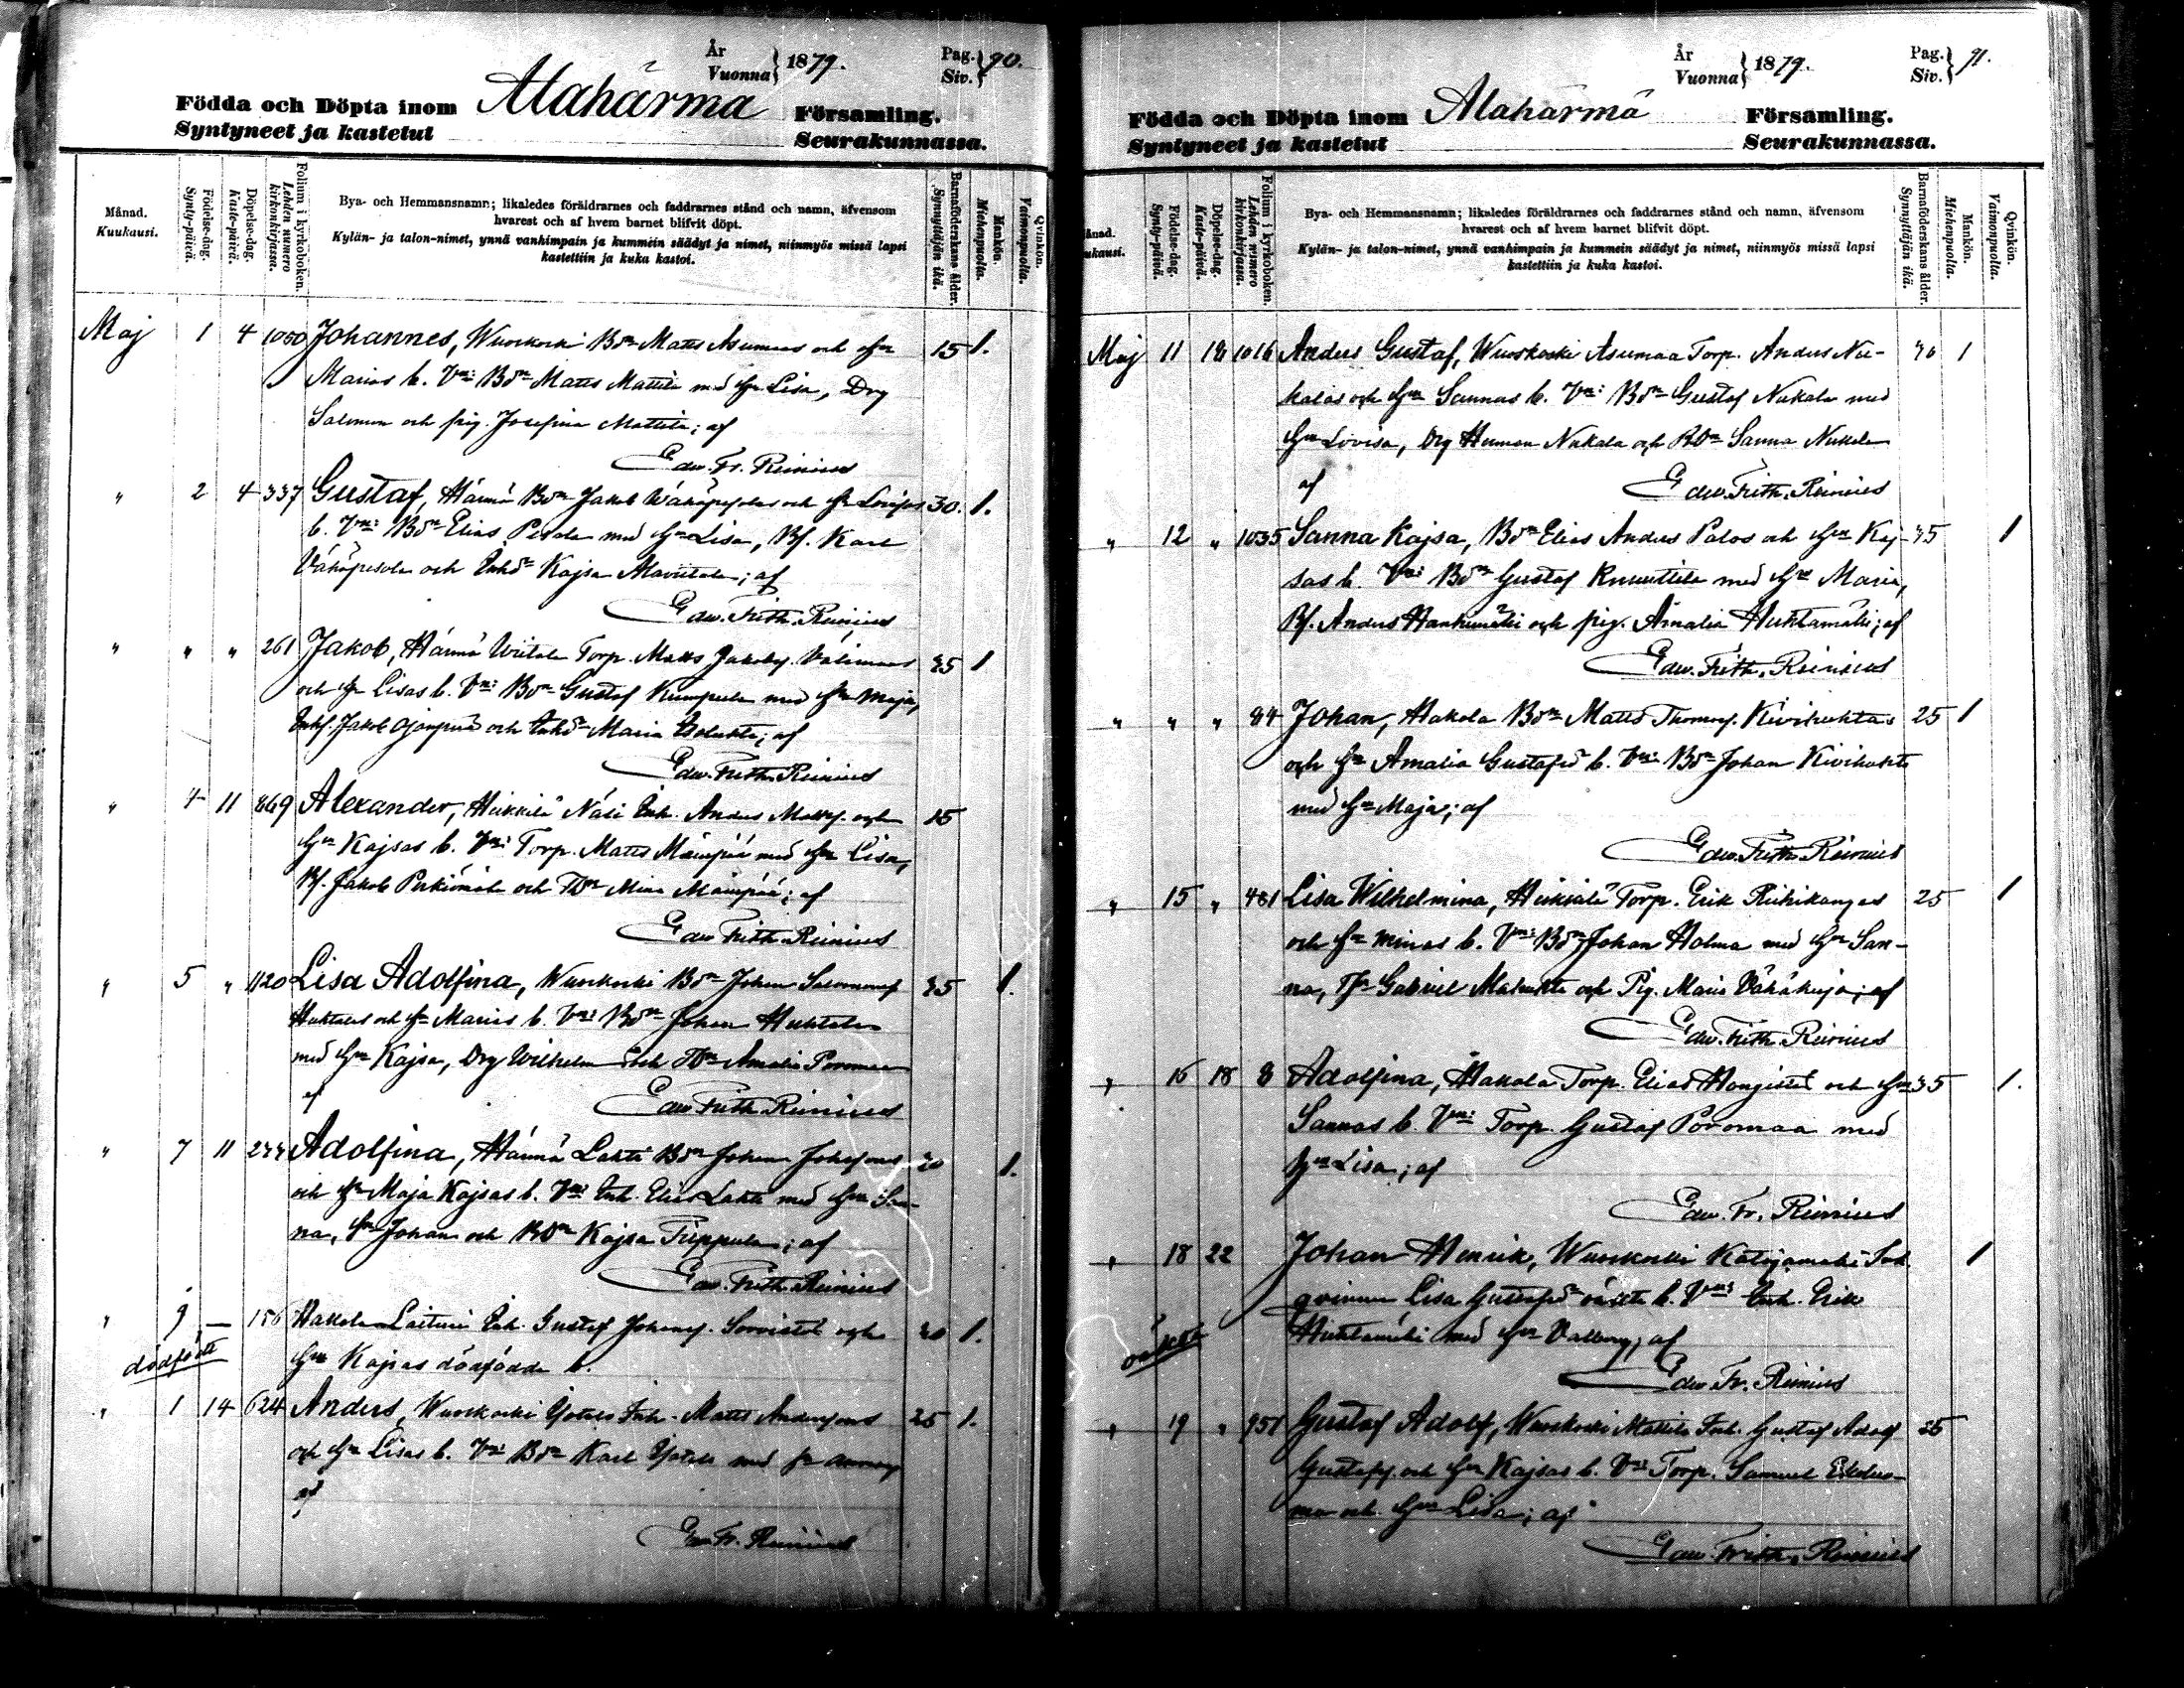 År
Vuonna } 1879.
Pag.
Siv. } 90.
Födda och Döpta inom Alahärmä Församling.
Syntyneet ja kastetut Seurakunnassa.
Månad.
Kuukausi.
Födelse-dag.
Synty-päivä.
Döpelse-dag.
Kaste-päivä.
Folium i kyrkoboken.
Lehden numero kirkonkirjassa.
Bya- och Hemmansnamn; likaledes föräldrarnes och faddrarnes stånd och namn, äfvensom
hvarest och af hvem barnet blifvit döpt.
Kylän- ja talon-nimet, ynnä vanhimpain ja kummein säädyt ja nimet, niinmyös missä lapsi
kastettiin ja kuka kastoi.
Barnaföderskans ålder.
Synnyttäjän ikä.
Mankön.
Miehenpuolia.
Qvinkön.
Vaimonpuolia.
Maj 1 4 1050 Johannes, Wuoskoski Bdn Matts Asumaas och Hu 15 1.
Marias b. Vni: Bdn Matts Mattila med Hu Lisa, Drg
Salomon och pig. Josefina Mattila; af
Edw. Fr. Reinius
" 2 4 337 Gustaf, Härmä Bdn Jakob Wähäpesolas och Hu Lovisas 30. 1.
b. Vni: Bdn Elias Pesola med Hu Lisa, Bf. Karl
Vähäpesola och Kajsa; af
Edw. Frith. Reinius
" " " 261 Jakob, Härmä Wiitala Torp. Matts Jakobss. Välimaas 35 1
och Hu Lisas b. Vni: Bdn Gustaf Kumpula med Hu Maja,
Jakob och Maria; af
Edw. Frith. Reinius
" 4 11 869 Alexander, Heikkilä Näsi Inh. Anders Mattss. och 15
Hu Kajsas b. Vni: Torp. Matts Mäenpää med Hu Lisa,
Bf. Jakob och Mina Mäenpää; af
Edw. Frith. Reinius
" 5 " 1120 Lisa Adolfina, Wuoskoski Bdn Johan Salomonss. 35 1.
Huhtalas och Hu Marias b. Vni: Bdn Johan Huhtala
med Hu Kajsa, Drg Wilhelm och Amalia Poromaa
af
Edw. Frith. Reinius
" 7 11 Adolfina, Härmä Lahti Bdn Johan 1.
och Hu Maja Kajsas b. Vni: Inh. Elias Lahti med Hu San-
na, Johan och Kajsa; af
Edw. Frith. Reinius
" 9 — 156 Hakola Laituri Inh. Gustaf Johanss. Sorvisto och 1.
dödfödt Hu Kajsas dödfödda b.
" 1 14 624 Anders, Wuoskoski Inh. Matts Anderssons 25 1.
och Hu Lisas b. Vni: Bdn Karl med Hu
af
Edw. Fr. Reinius
År
Vuonna } 1879.
Pag.
Siv. } 91.
Födda och Döpta inom Alahärmä Församling.
Syntyneet ja kastetut Seurakunnassa.
Månad.
Kuukausi.
Födelse-dag.
Synty-päivä.
Döpelse-dag.
Kaste-päivä.
Folium i kyrkoboken.
Lehden numero kirkonkirjassa.
Bya- och Hemmansnamn; likaledes föräldrarnes och faddrarnes stånd och namn, äfvensom
hvarest och af hvem barnet blifvit döpt.
Kylän- ja talon-nimet, ynnä vanhimpain ja kummein säädyt ja nimet, niinmyös missä lapsi
kastettiin ja kuka kastoi.
Barnaföderskans ålder.
Synnyttäjän ikä.
Mankön.
Miehenpuolia.
Qvinkön.
Vaimonpuolia.
Maj 11 18 1016 Anders Gustaf, Wuoskoski Asumaa Torp. Anders Nu- 1
kalas och Hu Sannas b. Vni: Bdn Gustaf Nukala med
Hu Lovisa, Drg Herman Nukala och Sanna Nukala
af
Edw. Frith. Reinius
" 12 " 1035 Sanna Kajsa, Bdn Elias Anders Palos och Hu Kaj- 35 1
sas b. Vni: Bdn Gustaf Knuuttila med Hu Maria,
Bf. Anders och pig. Amalia Huhtamäki; af
Edw. Frith. Reinius
" " " 84 Johan, Hakola Bdn Matts Thomass. Kivihuhtas 25 1
och Hu Amalia Gustafsd. b. Vni: Bdn Johan Kivihuhta
med Hu Maja; af
Edw. Frith. Reinius
" 15 " 481 Lisa Wilhelmina, Heikkilä Torp. Erik Riihikangas 25 1
och Hu Minas b. Vni: Bdn Johan Holma med Hu San-
na, Gabriel och Pig. Maria Vähäkuja; af
Edw. Frith. Reinius
" 16 18 8 Adolfina, Hakola Torp. Elias Hongisto och Hu 35 1.
Sannas b. Vni: Torp. Gustaf Poromaa med
Hu Lisa; af
Edw. Fr. Reinius
" 18 22 Johan Henrik, Wuoskoski Inh. 1
qvinnan Lisa Gustafsd. oäkta b. Vni: Inh. Erik
oäkta Huhtamäki med Hu Valborg; af
Edw. Fr. Reinius
" 19 " 951 Gustaf Adolf, Wuoskoski Mattila Inh. Gustaf Adolf
Gustafss. och Hu Kajsas b. Vni: Torp. Samuel
och Hu Lisa; af
Edw. Frith. Reinius